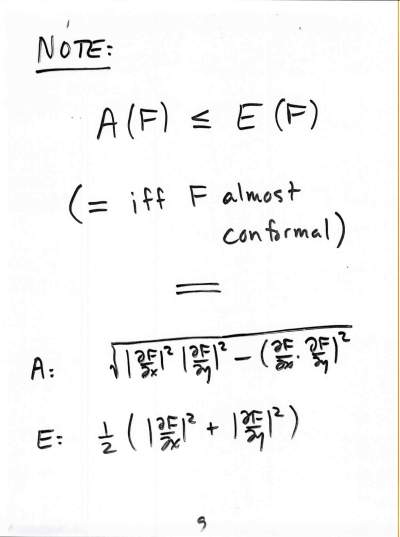 NOTE:
A(F) ≤ E(F)
(= iff F almost
conformal)
=
A: √(|∂F/∂x|² |∂F/∂y|² − (∂F/∂x · ∂F/∂y)²)
E: 1/2 (|∂F/∂x|² + |∂F/∂y|²)
9